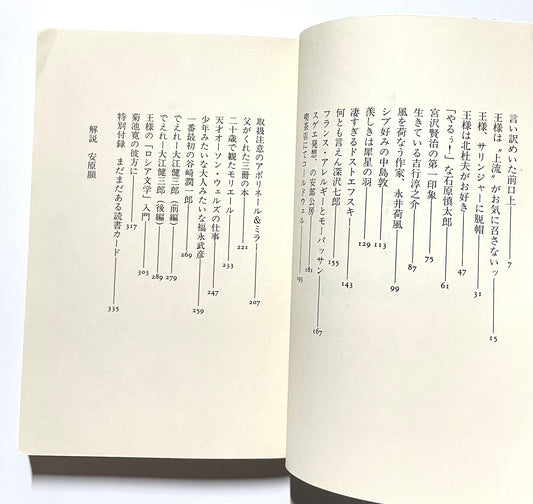 言い訳めいた前口上 7
王様は〝上流〟がお気に召さないッ 15
王様、サリンジャーに脱帽 31
王様は北杜夫がお好き 47
「やるぅ！」な石原慎太郎 61
宮沢賢治の第一印象 75
生きている吉行淳之介 87
風を荷なう作家、永井荷風 99
シブ好みの中島敦 113
羨しきは犀星の羽 129
凄すぎるドストエフスキー 143
何とも言えん深沢七郎 155
フランス・アレルギーとモーパッサン 167
スゲエ発想、の安部公房 181
喫茶店にてコールドウェル 193
取扱注意のアポリネール＆ミラー 207
父がくれた三冊の本 221
二十歳で観たモリエール 233
天才オーソン・ウェルズの仕事 247
少年みたいな大人みたいな福永武彦 259
一番最初の谷崎潤一郎 269
でえれー大江健三郎（前編） 279
でえれー大江健三郎（後編） 289
王様の「ロシア文学」入門 303
菊池寛の彼方に 317
特別付録 まだまだある読書カード 335
解説 安原顯